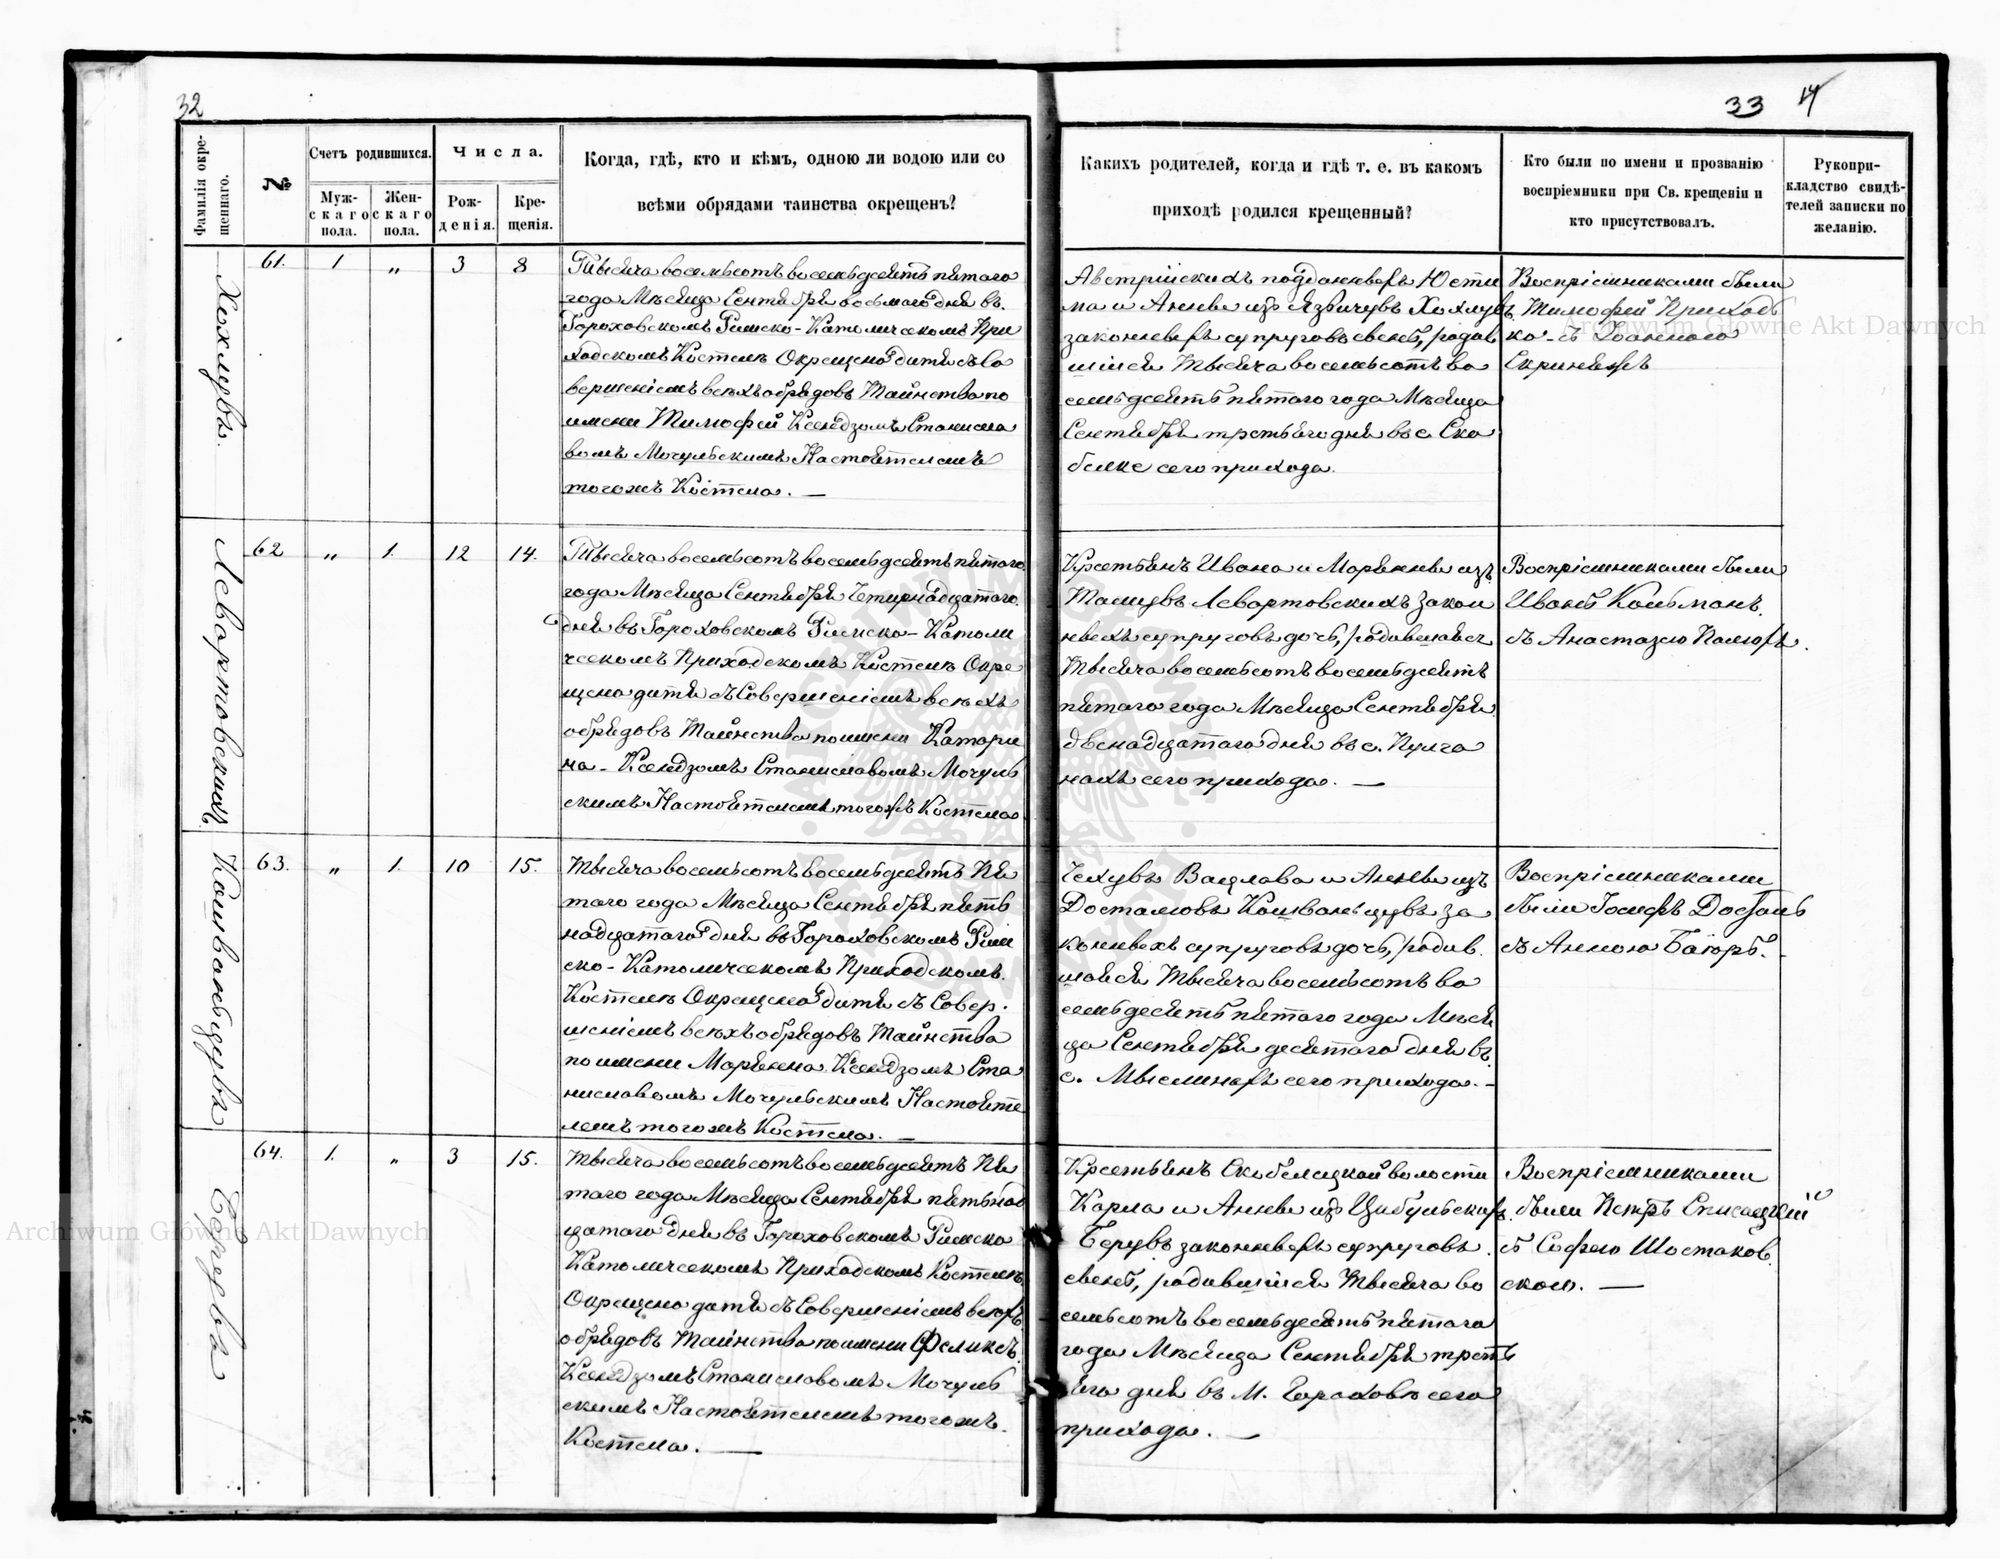 32
33
Фамилія окре-
щеннаго.
№
Счетъ родившихся.
Муж-
скаго
пола.
Жен-
скаго
пола.
Числа.
Рож-
денія.
Кре-
щенія.
Когда, гдѣ, кто и кѣмъ, одною ли водою или со
всѣми обрядами таинства окрещенъ?
Какихъ родителей, когда и гдѣ т. е. въ какомъ
приходѣ родился крещенный?
Кто были по имени и прозванію
воспріемники при Св. крещеніи и
кто присутствовалъ.
Рукопри-
кладство свидѣ-
телей записки по
желанію.
Хохлувъ.
61.
1
„
3
8
Тысяча восемьсотъ восемьдесятъ пятаго
года Мѣсяца Сентября восьмаго дня въ
Гороховскомъ Римско-Католическомъ При
ходскомъ Костелѣ Окрещено дитя съ со
вершеніемъ всѣхъ обрядовъ Таинства по
имени Тимофей Ксендзомъ Станисла
вомъ Мочульскимъ Настоятелемъ
тогожъ Костела. —
Австрійскихъ подданныхъ Юсти
на и Анны изъ Язвичувъ Хохлувъ
законныхъ супруговъ сынъ, родив
шійся Тысяча восемьсотъ во
семьдесятъ пятаго года Мѣсяца
Сентября третьяго дня въ с. Ско
белке сего прихода.
Воспріемниками были
Тимофей Приходь
ко - съ Іоанною
Левартовскихъ
62
„
1.
12
14.
Тысяча восемьсотъ восемьдесятъ пятаго
года Мѣсяца Сентября Четырнадцатаго
дня въ Гороховскомъ Римско-Католи
ческомъ Приходскомъ Костелѣ Окре
щено дитя съ Совершеніемъ всѣхъ
обрядовъ Таинства по имени Катари
на - Ксендзомъ Станиславомъ Мочуль
скимъ Настоятелемъ тогожъ Костела
Крестьянъ Ивана и Маріанны изъ
Левартовскихъ закон
ныхъ супруговъ дочь, родившаяся
Тысяча восемьсотъ восемьдесятъ
пятаго года Мѣсяца Сентября
двенадцатаго дня въ с. Пулга
нахъ сего прихода. —
Воспріемниками были
Иванъ
съ Анастазею
Кошваньцувъ
63.
„
1.
10
15.
Тысяча восемьсотъ восемьдесятъ Пя
таго года Мѣсяца Сентября пять
надцатаго дня въ Гороховскомъ Рим
ско-Католическомъ Приходскомъ
Костелѣ Окрещено дитя съ Совер.
шеніемъ всѣхъ обрядовъ Таинства
по имени Маріанна Ксендзомъ Ста
ниславомъ Мочульскимъ Настояте
лемъ тогожъ Костела. —
Чехувъ Вацлава и Анны изъ
Досталювъ Кошваньцувъ за
конныхъ супруговъ дочь, родив.
шаяся Тысяча восемьсотъ во
семьдесятъ пятаго года Мѣся
ца Сентября десятаго дня въ
с. Мыслинахъ сего прихода. -
Воспріемниками
были Іосифъ Досталь
съ Анною Баюръ.
Берувъ
64.
1.
„
3
15.
Тысяча восемьсотъ восемьдесятъ Пя
таго года Мѣсяца Сентября пятьнад
цатаго дня въ Гороховскомъ Римско
Католическомъ Приходскомъ Костелѣ
Окрещено дитя съ Совершеніемъ всѣхъ
обрядовъ Таинства по имени Феликсъ
Ксендзомъ Станиславомъ Мочуль
скимъ Настоятелемъ тогожъ
Костела. —
Крестьянъ Скобелецкой волости
Карла и Анны изъ Цибульскихъ
Берувъ законныхъ супруговъ
сынъ, родившійся Тысяча во
семьсотъ восемьдесятъ пятаго
года Мѣсяца Сентября треть
яго дня въ М. Гороховѣ сего
прихода. —
Воспріемниками
были Петръ
съ Софею Шостаков
скою. —
Archiwum Główne Akt Dawnych
Archiwum Główne Akt Dawnych